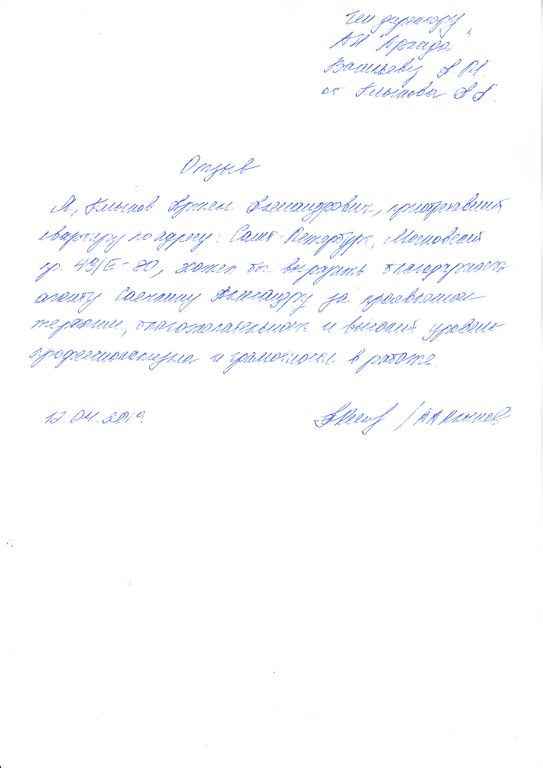 Ген директору
АН "Аркада"
Васильеву
от Клыкова А А.
Отзыв
Я, Клыков Артем Александрович, приобретавший
квартиру по адресу: Санкт-Петербург, Московский
пр. 49/Е-80, хотел бы выразить благодарность
агенту Александру за проявленное
терпение, благожелательность и высокий уровень
профессионализма и грамотности в работе.
12.04.2019